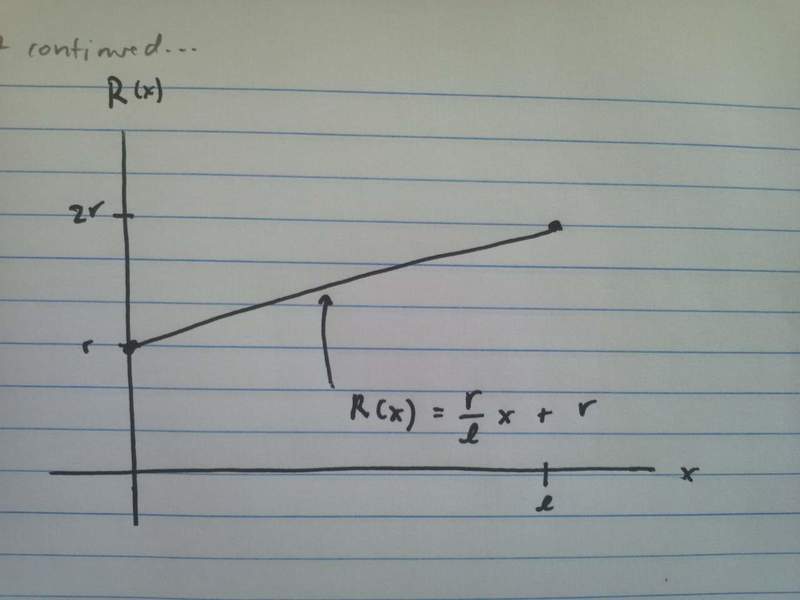 continued...
R(x)
2r
r
R(x) = r/l x + r
x
l